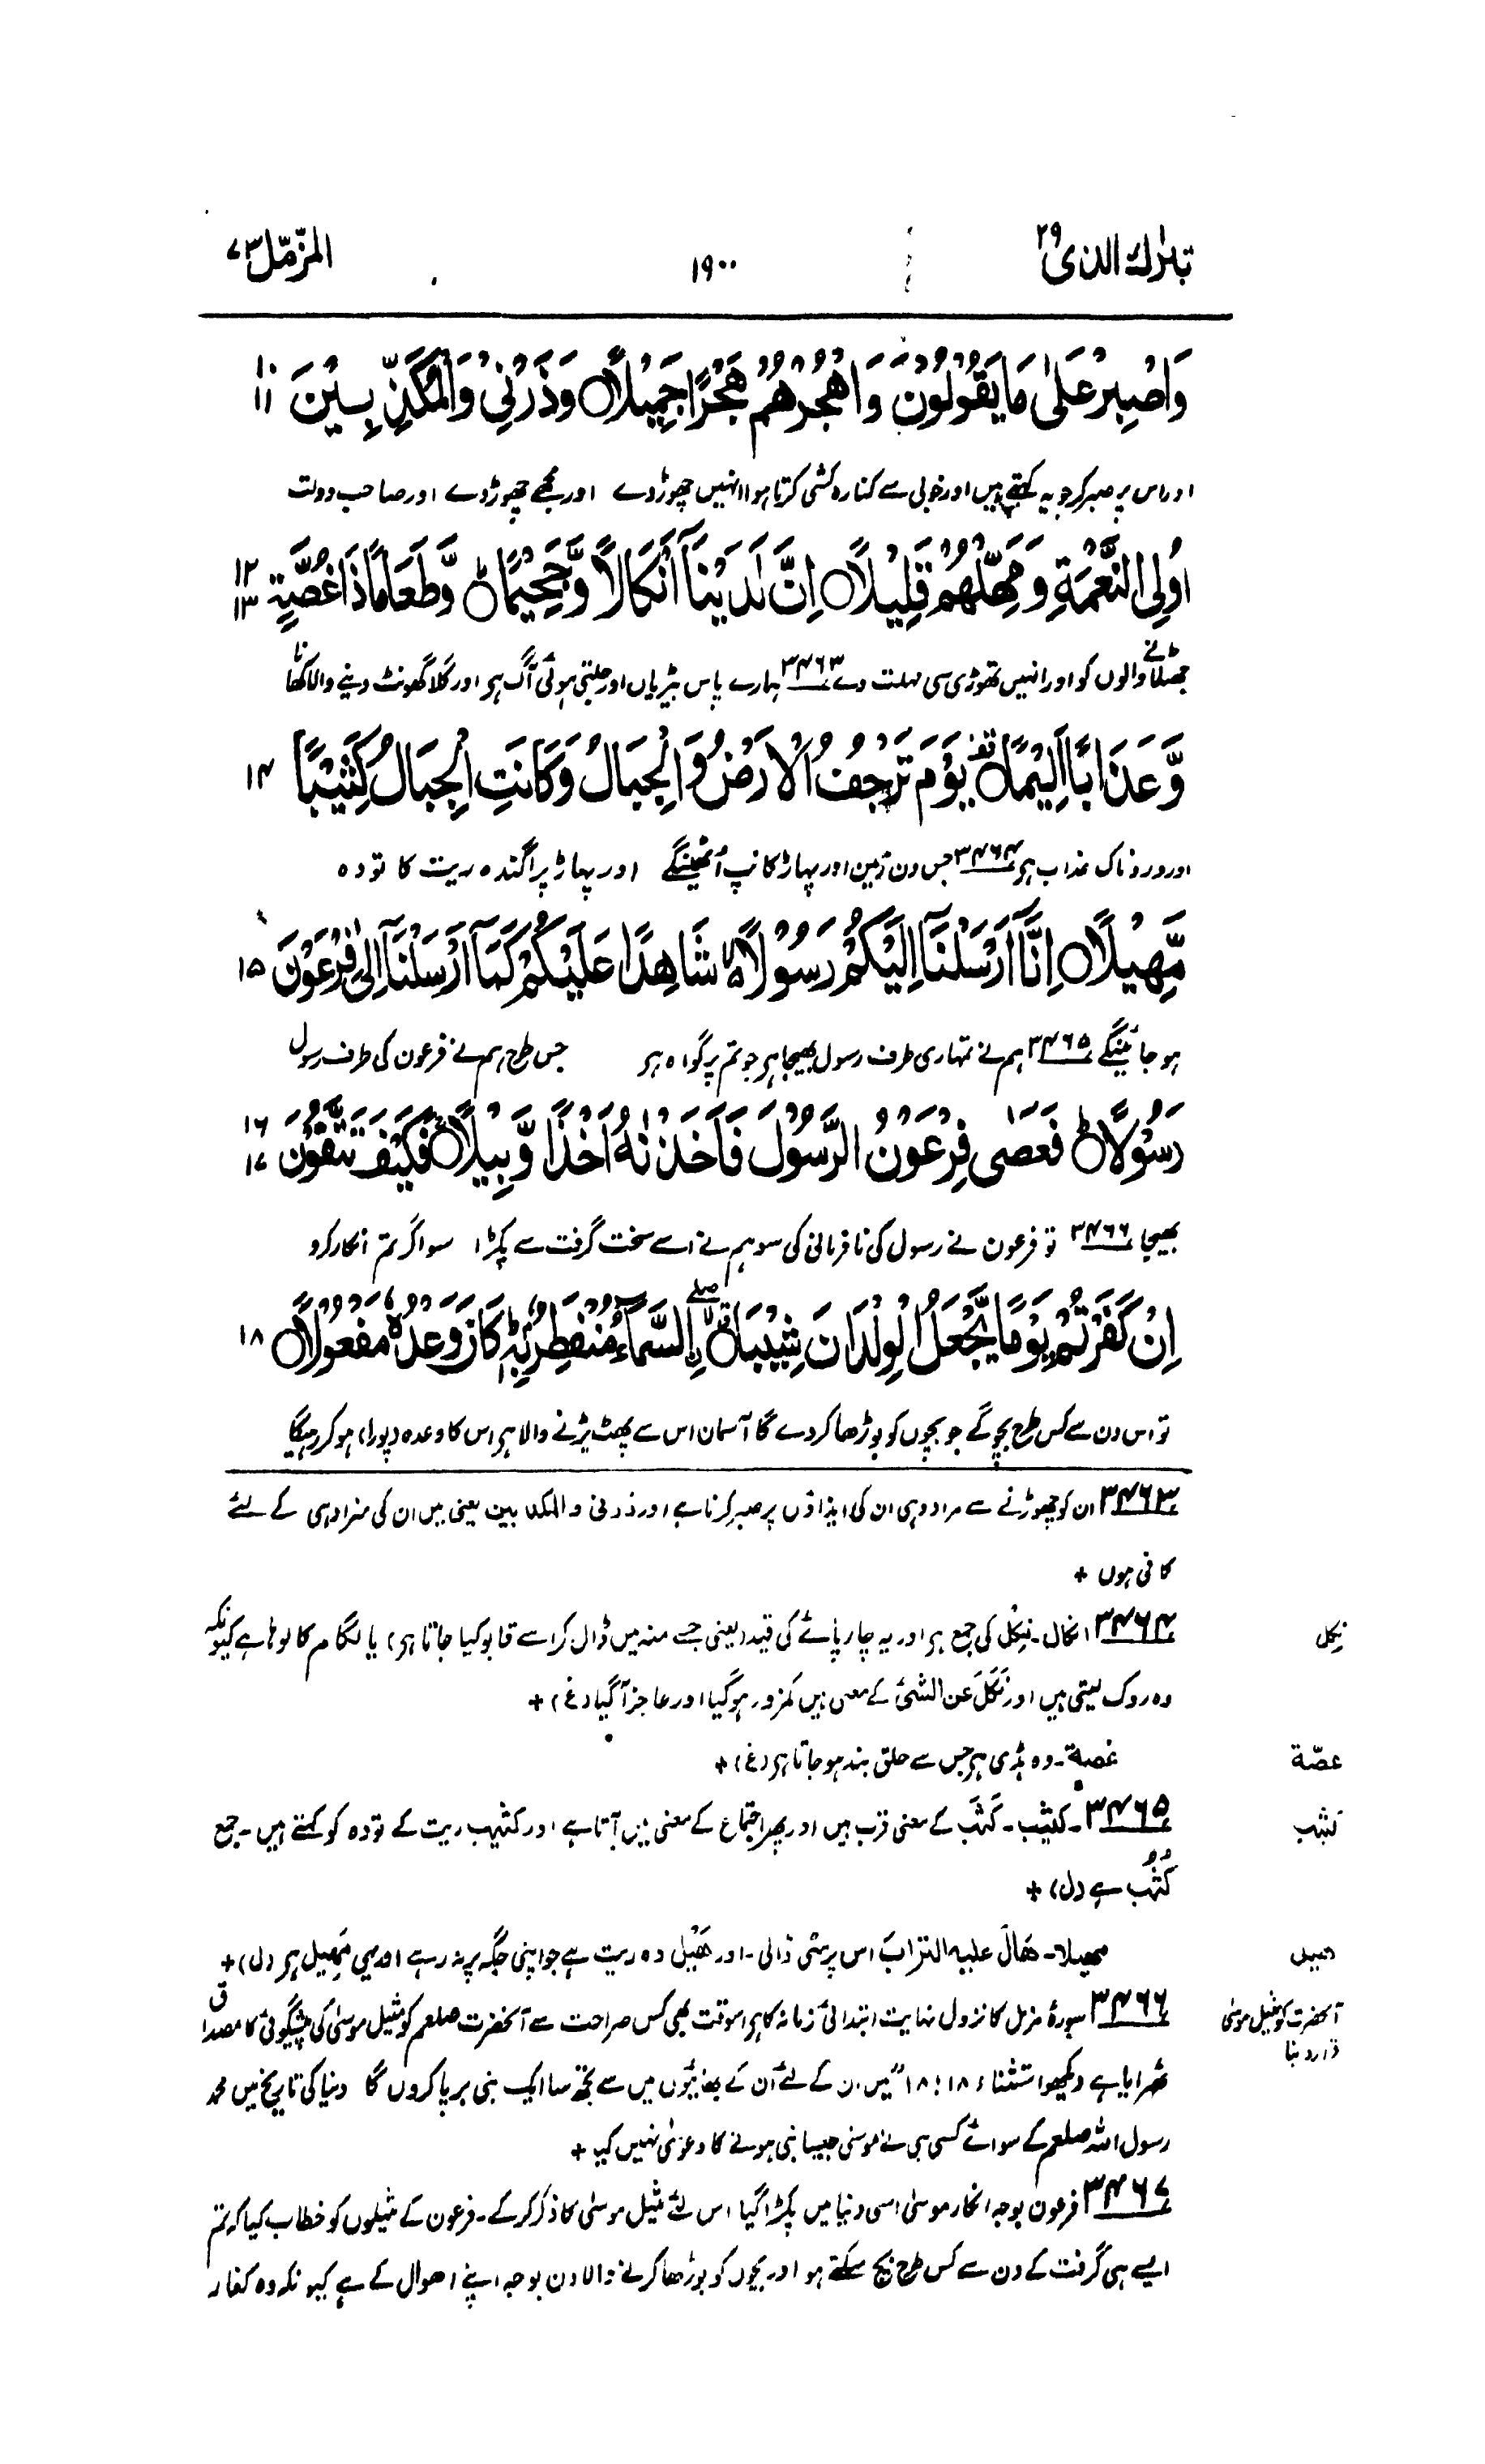 تبٰرك الذی ۲۹
۱۹۰۰
المزّمّل ۷۳
وَاصْبِرْ عَلٰى مَا يَقُوْلُوْنَ وَاهْجُرْهُمْ هَجْرًا جَمِيْلًا۝ وَذَرْنِيْ وَالْمُكَذِّبِيْنَ ۱۰ ۱۱
اور اس پر صبر کر جو یہ کہتے ہیں اور خوبی سے کنارہ کشی کرتا ہوا انہیں چھوڑ دے اور مجھے چھوڑ دے اور صاحب دولت
اُولِى النَّعْمَةِ وَمَهِّلْهُمْ قَلِيْلًا۝ اِنَّ لَدَيْنَآ اَنْكَالًا وَّجَحِيْمًا۝ وَّطَعَامًا ذَا غُصَّةٍ ۱۲ ۱۳
جھٹلانے والوں کو اور انہیں تھوڑی سی مہلت دے ۳۴۶۳ ہمارے پاس بیڑیاں اور جلتی ہوئی آگ ہر اور گلا گھونٹ دینے والا کھانا
وَّعَذَابًا اَلِيْمًا۝ يَوْمَ تَرْجُفُ الْاَرْضُ وَالْجِبَالُ وَكَانَتِ الْجِبَالُ كَثِيْبًا ۱۴
اور دردناک عذاب ہر ۳۴۶۴ جس دن زمین اور پہاڑ کانپ اُٹھینگے اور پہاڑ پراگندہ ریت کا تودہ
مَّهِيْلًا۝ اِنَّآ اَرْسَلْنَآ اِلَيْكُمْ رَسُوْلًا شَاهِدًا عَلَيْكُمْ كَمَآ اَرْسَلْنَآ اِلٰى فِرْعَوْنَ ۱۵
ہو جائینگے ۳۴۶۵ ہم نے تمہاری طرف رسول بھیجا ہر جو تم پر گواہ ہر جس طرح ہم نے فرعون کی طرف رسول
رَسُوْلًا۝ فَعَصٰى فِرْعَوْنُ الرَّسُوْلَ فَاَخَذْنٰهُ اَخْذًا وَّبِيْلًا۝ فَكَيْفَ تَتَّقُوْنَ ۱۶ ۱۷
بھیجا ۳۴۶۶ تو فرعون نے رسول کی نافرمانی کی سو ہم نے اسے سخت گرفت سے پکڑا سو اگر تم انکار کرو
اِنْ كَفَرْتُمْ يَوْمًا يَّجْعَلُ الْوِلْدَانَ شِيْبَا۝ اِۨلسَّمَآءُ مُنْفَطِرٌۢ بِهٖ كَانَ وَعْدُهٗ مَفْعُوْلًا۝ ۱۸
تو اس دن سے کس طرح بچو گے جو بچوں کو بوڑھا کر دے گا آسمان اس سے پھٹ پڑنے والا ہر اس کا وعدہ (پورا) ہو کر رہیگا
۳۴۶۳ ان کو چھوڑنے سے مراد وہی ان کی ایذاؤں پر صبر کرنا ہے اور ذرنی والمکذبین یعنی میں ان کی سزا دہی کے لئے
کافی ہوں +
۳۴۶۴ انکال۔ نِکْل کی جمع ہر اور یہ چارپائے کی قید (یعنی جسے منہ میں ڈال کر اسے قابو کیا جاتا ہر) یا لگام کا لوہا ہے کیونکہ
نکل
وہ روک لیتی ہیں اور نَکَلَ عن الشئ کے معنی ہیں کمزور ہوگیا اور عاجز آ گیا (غ) +
غصة۔ وہ ہڈی ہر جس سے حلق بند ہو جاتا ہر (غ) +
غصّة
۳۴۶۵۔ کثیب۔ کَثَب کے معنی قرب ہیں اور پھر اجتماع کے معنی میں آتا ہے اور کثیب ریت کے تودہ کو کہتے ہیں۔ جمع
کثب
کُثُب ہے (ل) +
مھیلا۔ ھَالَ علیہ الترابَ اس پر مٹی ڈالی۔ اور ھَیْل وہ ریت ہے جو اپنی جگہ پر نہ رہے اور یہی مَھِیل ہر (ل) +
ھیل
۳۴۶۶ سورۂ مزمل کا نزول نہایت ابتدائی زمانہ کا ہر اسوقت بھی کس صراحت سے آنحضرت صلعم کو مثیل موسیٰ کی پیشگوئی کا مصداق
آنحضرت کو مثیل موسیٰ
قرار دینا
ٹھرایا ہے دیکھو استثناء ۱۸:۱۸ "میں ان کے لئے اُن کے بھائیوں میں سے تجھ سا ایک نبی برپا کروں گا دنیا کی تاریخ میں محمد
رسول اللہ صلعم کے سوائے کسی نبی نے موسیٰ جیسا نبی ہونے کا دعویٰ نہیں کیا +
۳۴۶۷ فرعون بوجہ انکار موسیٰ اسی دنیا میں پکڑا گیا اس لئے مثیل موسیٰ کا ذکر کرکے۔ فرعون کے مثیلوں کو خطاب کیا کہ تم
ایسے ہی گرفت کے دن سے کس طرح بچ سکتے ہو اور بچوں کو بوڑھا کرنے والا دن بوجہ اپنے اھوال کے ہے کیونکہ وہ کفار